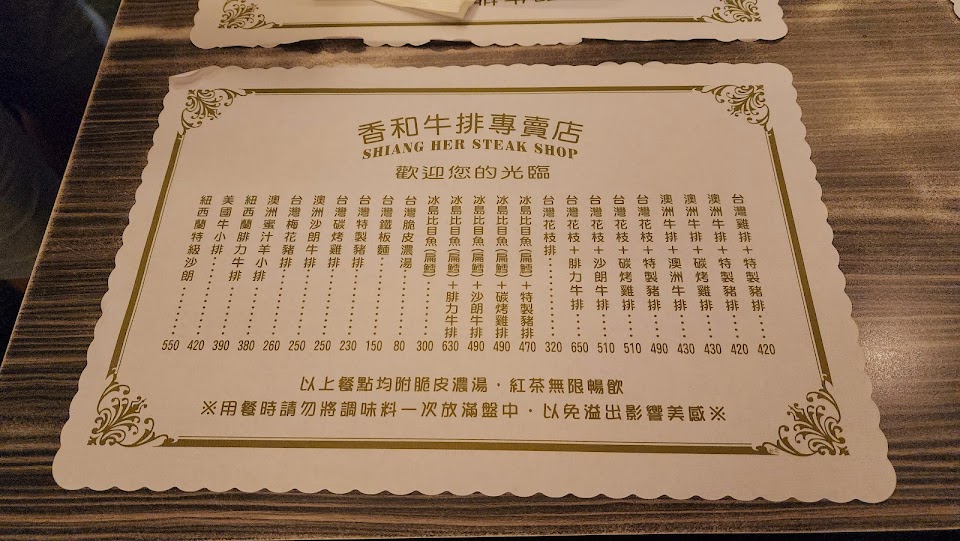 香和牛排專賣店
SHIANG HER STEAK SHOP
歡迎您的光臨
紐西蘭特級沙朗 550
美國牛小排 420
紐西蘭腓力牛排 390
澳洲蜜汁牛小排 380
台灣梅花豬排 260
澳洲沙朗牛排 250
台灣碳烤雞排 250
台灣特製豬排 230
台灣鐵板麵 150
台灣脆皮濃湯 80
冰島比目魚(扁鱈) 300
冰島比目魚(扁鱈)+腓力牛排 630
冰島比目魚(扁鱈)+沙朗牛排 490
冰島比目魚(扁鱈)+碳烤雞排 490
冰島比目魚(扁鱈)+特製豬排 470
台灣花枝排 320
台灣花枝+腓力牛排 650
台灣花枝+沙朗牛排 510
台灣花枝+碳烤雞排 510
台灣花枝+特製豬排 490
澳洲牛排+澳洲牛排 430
澳洲牛排+碳烤雞排 430
澳洲牛排+特製豬排 420
台灣雞排+特製豬排 420
以上餐點均附脆皮濃湯．紅茶無限暢飲
※用餐時請勿將調味料一次放滿盤中．以免溢出影響美感※